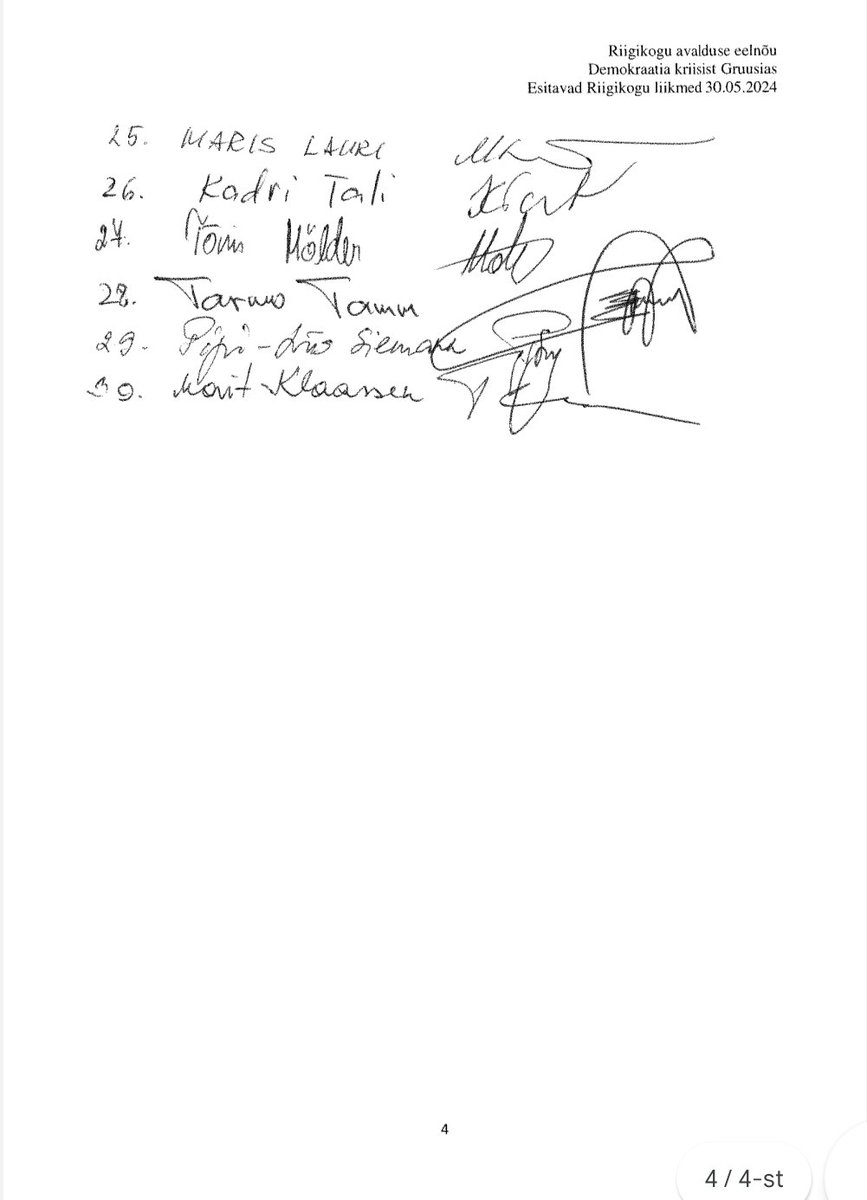 Riigikogu avalduse eelnõu
Demokraatia kriisist Gruusias
Esitavad Riigikogu liikmed 30.05.2024
25. MARIS LAURI
26. Kadri Tali
27. Tõnis Mölder
28. Tarmo Tamm
29. Pipi-Liis Siemann
30. Marit Klaassen
4
4 / 4-st